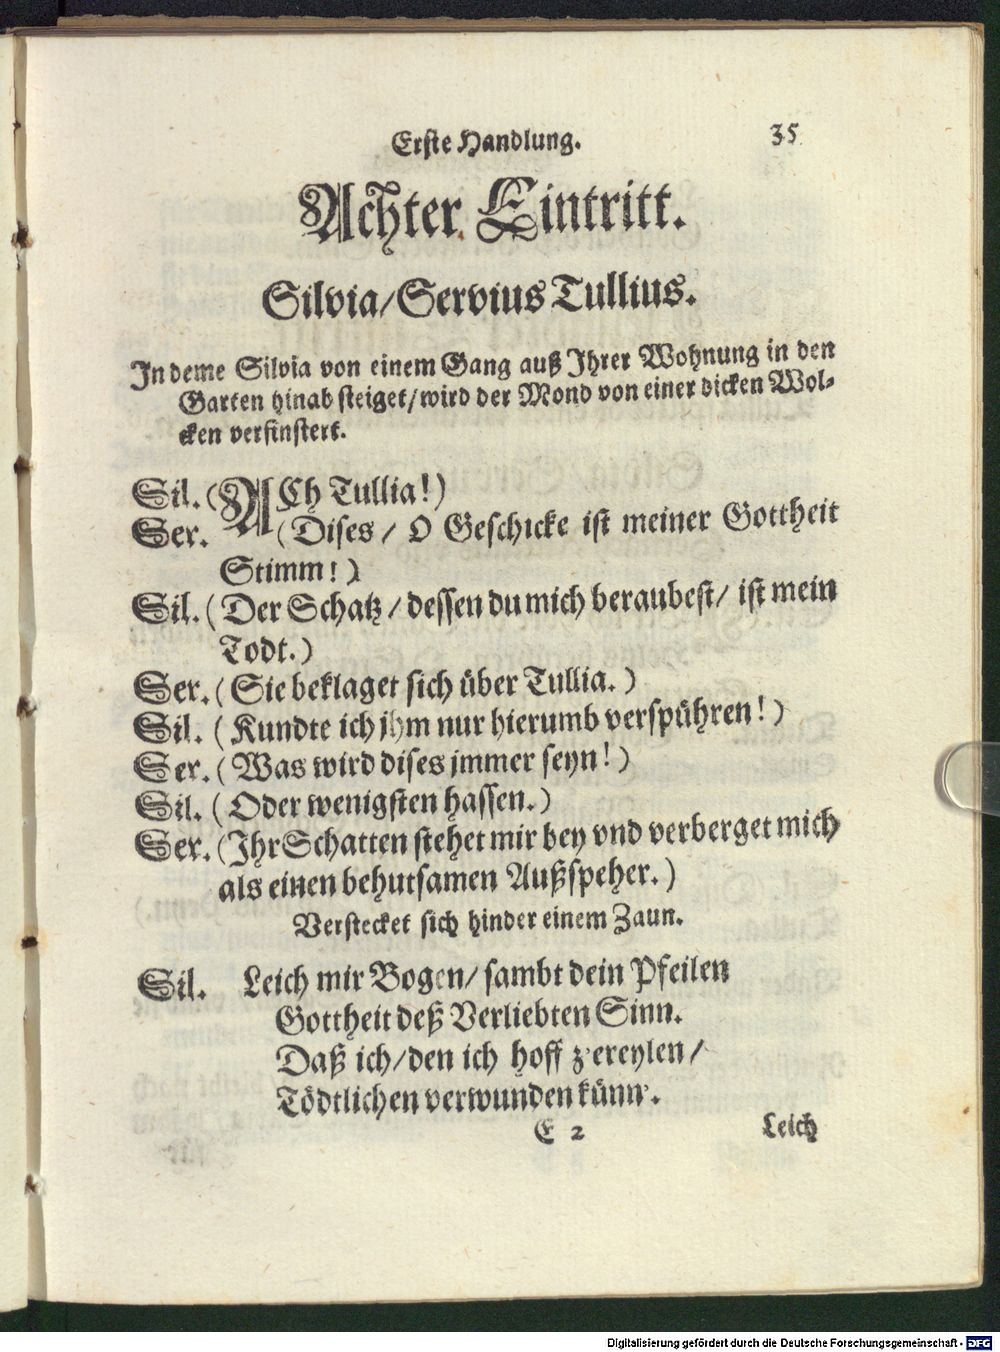 Erste Handlung. 35
Achter Eintritt.
Silvia/Servius Tullius.
In deme Silvia von einem Gang auß Ihrer Wohnung in den
Garten hinab steiget/wird der Mond von einer dicken Wol-
cken verfinstert.
Sil. (ACh Tullia!)
Ser. (Dises / O Geschicke ist meiner Gottheit
Stimm!)
Sil. (Der Schatz / dessen du mich beraubest/ ist mein
Todt.)
Ser. (Sie beklaget sich über Tullia.)
Sil. (Kundte ich jhm nur hierumb verspühren!)
Ser. (Was wird dises jmmer seyn!)
Sil. (Oder wenigsten hassen.)
Ser. (Ihr Schatten stehet mir bey vnd verberget mich
als einen behutsamen Außspeher.)
Verstecket sich hinder einem Zaun.
Sil. Leich mir Bogen/ sambt dein Pfeilen
Gottheit deß Verliebten Sinn.
Daß ich/den ich hoff z'ereylen/
Tödtlichen verwunden künn'.
E 2 Leich
Digitalisierung gefördert durch die Deutsche Forschungsgemeinschaft - DFG